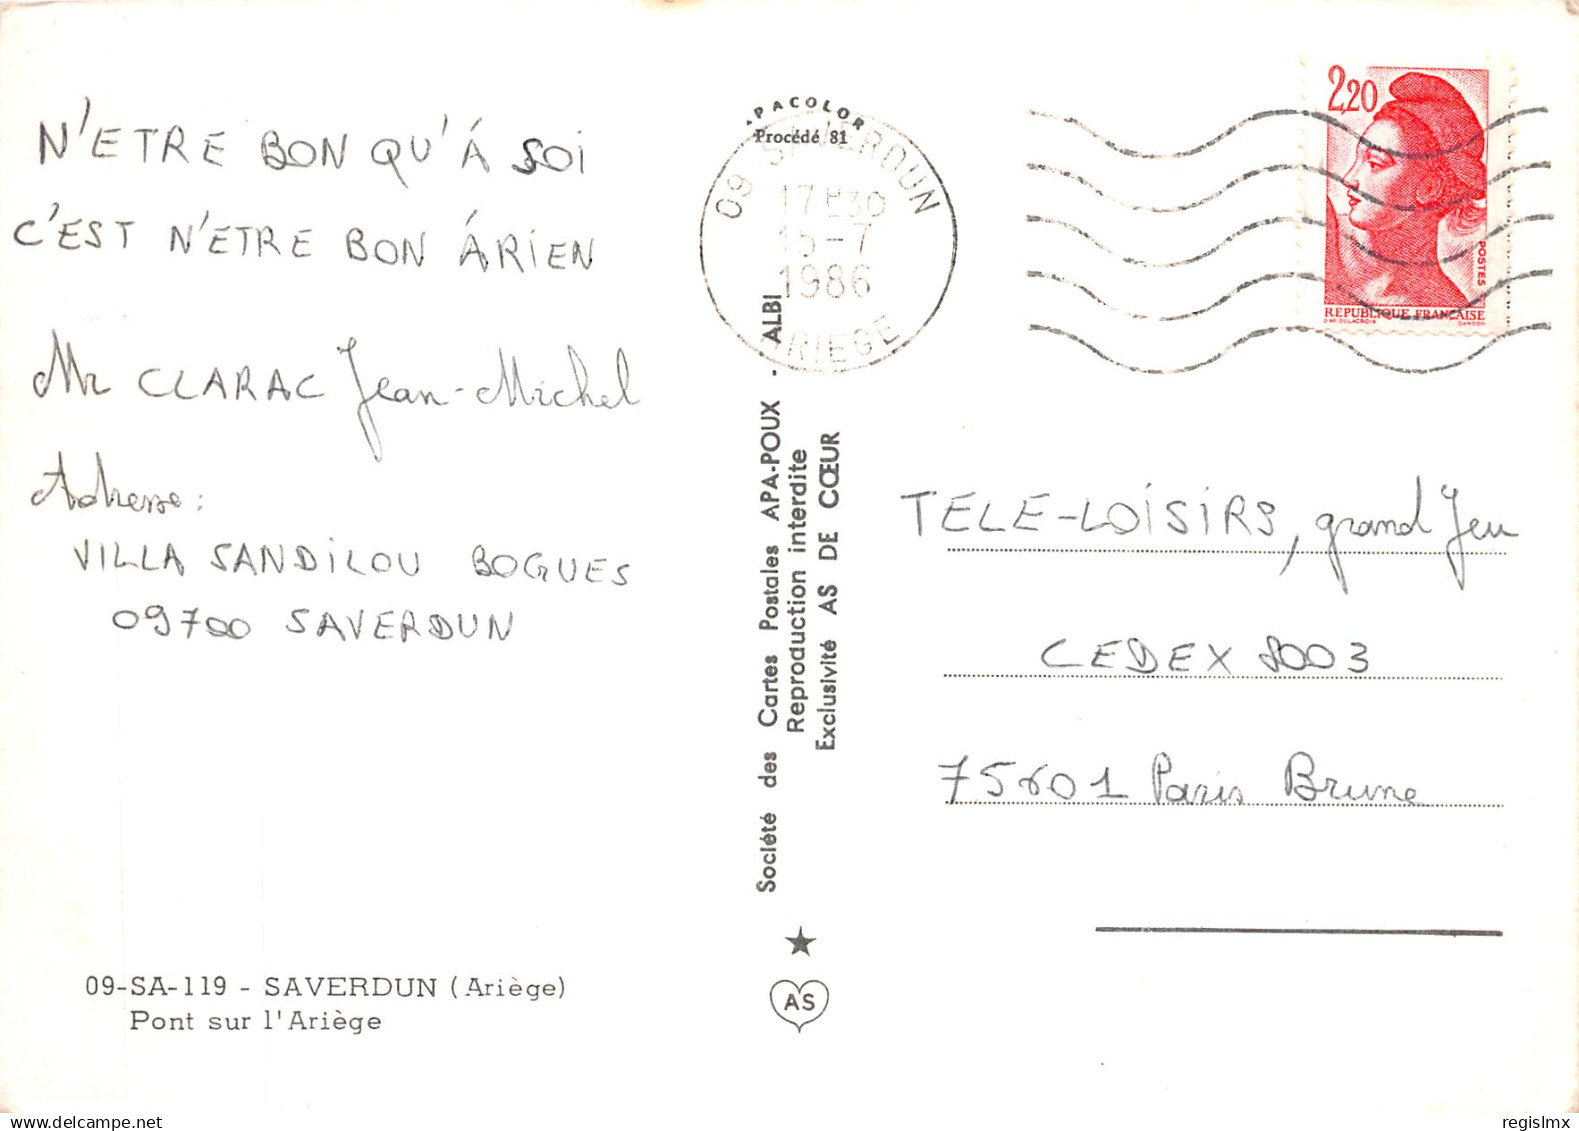 N'ETRE BON QU'Á SOI
C'EST N'ETRE BON ÁRIEN
Mr CLARAC Jean-Michel
Adresse:
VILLA SANDILOU BOGUES
09700 SAVERDUN
09-SA-119 - SAVERDUN (Ariège)
Pont sur l'Ariège
APACOLOR
Procédé 81
09 SAVERDUN
17H30
15-7
1986
ARIEGE
Société des Cartes Postales APA-POUX - ALBI
Reproduction interdite
Exclusivité AS DE CŒUR
AS
2,20
POSTES
REPUBLIQUE FRANÇAISE
D'AP. DELACROIX GANDON
TELE-LOISIRS, grand Jeu
CEDEX 8003
75601 Paris Brune
regislmx